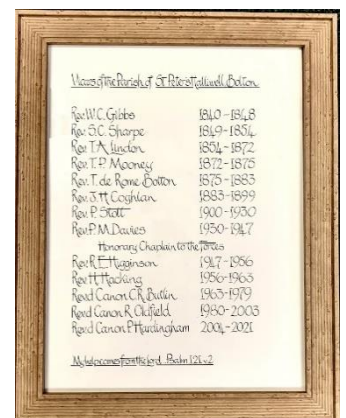 Vicars of the Parish of St Peter's Halliwell Bolton
Rev. W.C. Gibbs 1840-1848
Rev. S.C. Sharpe 1849-1854
Rev. T.A. Lindon 1854-1872
Rev. T.P. Mooney 1872-1875
Rev. T. de Rome Bolton 1875-1883
Rev. J.H. Coghlan 1883-1899
Rev. P. Stott 1900-1930
Rev. P.M. Davies 1930-1947
Honorary Chaplain to the forces
Rev. R.E. Higginson 1947-1956
Rev. H. Hacking 1956-1963
Revd Canon C.R. Butlin 1963-1979
Revd Canon R. Oldfield 1980-2003
Revd Canon P. Hardingham 2004-2021
My help comes from the lord. Psalm 121 v.2